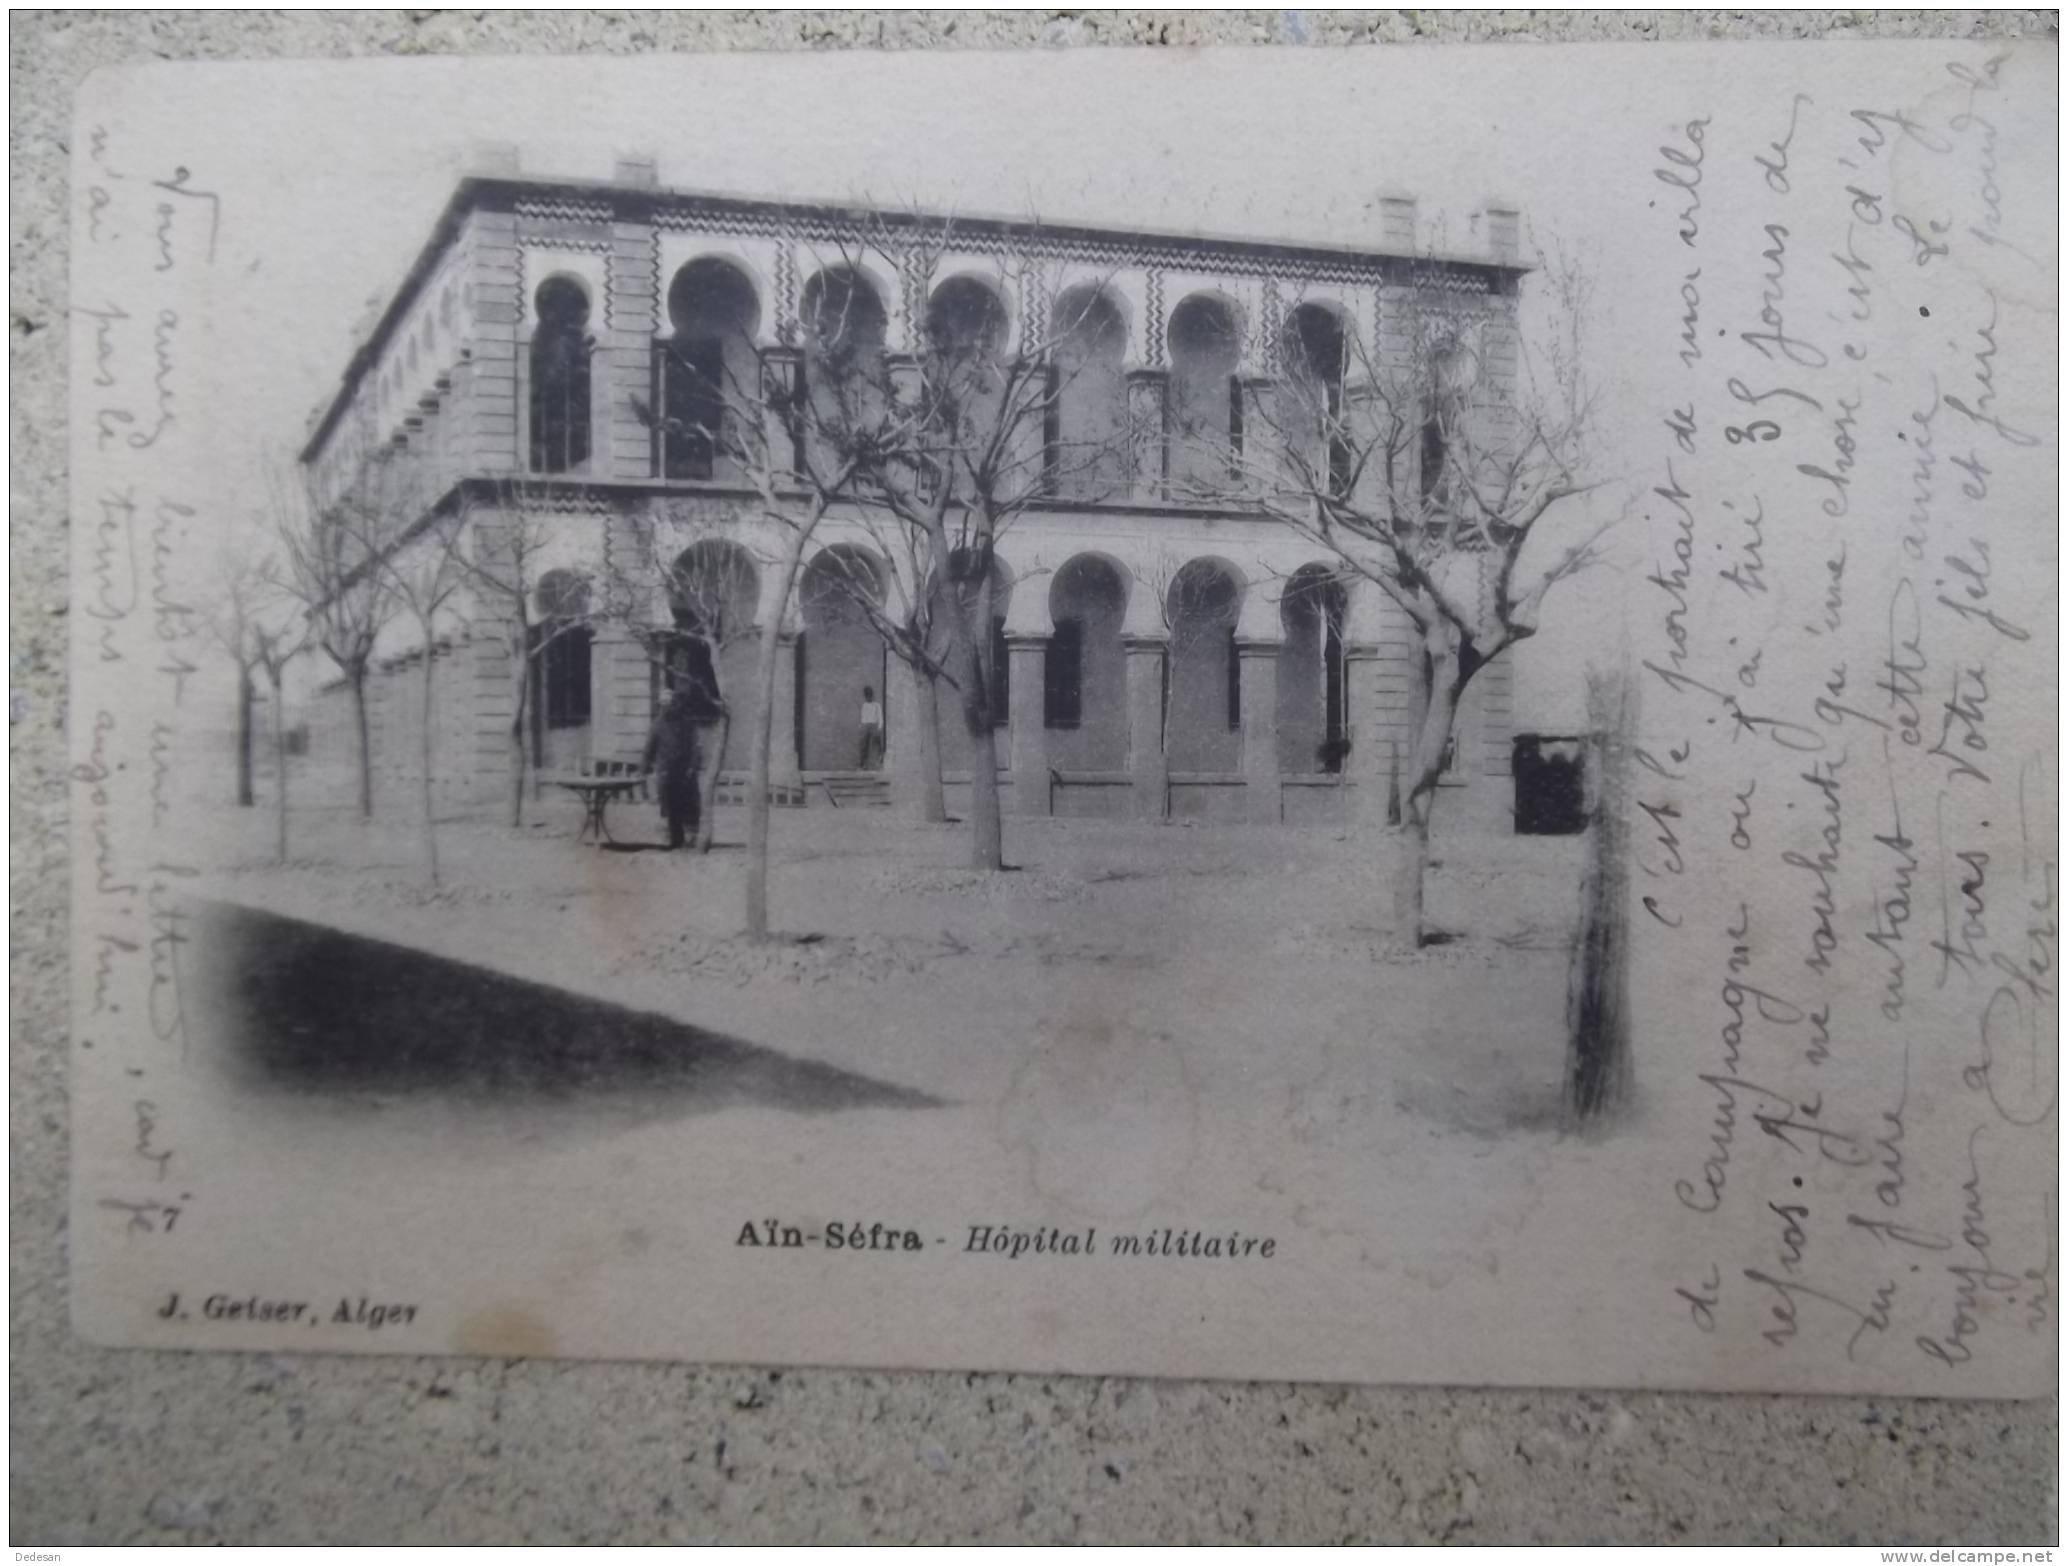 C'est le portrait de ma villa
de Campagne ou j'ai tiré 35 jours de
repos. Je ne souhaite qu'une chose c'est d'y
en faire autant cette année. Le
bonjour a tous. Votre fils et frère pour la
vie
Vous aurez bientôt une lettre, car je
n'ai pas le temps aujourd'hui.
7
Aïn-Séfra - Hôpital militaire
J. Geiser, Alger
Dedesan
www.delcampe.net